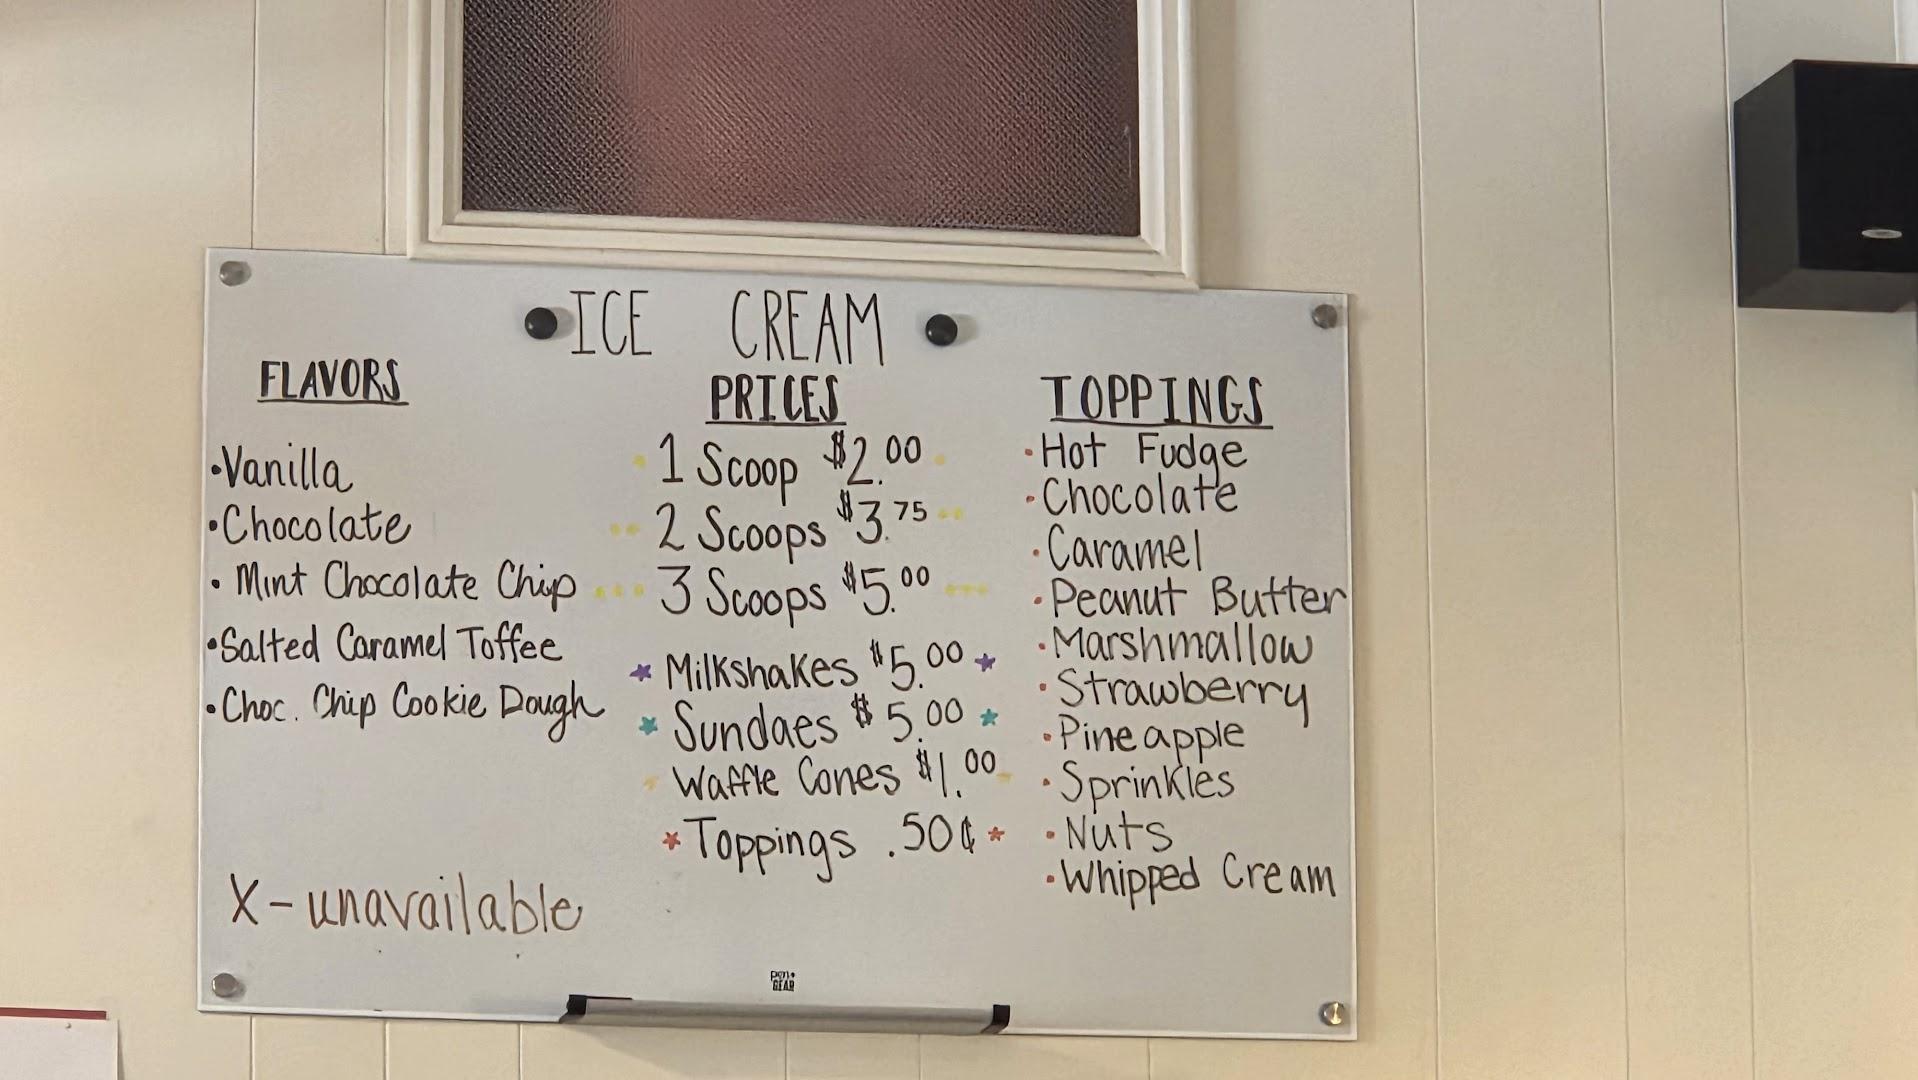 ICE CREAM
FLAVORS
•Vanilla
•Chocolate
• Mint Chocolate Chip
•Salted Caramel Toffee
•Choc. Chip Cookie Dough
X - unavailable
PRICES
1 Scoop $2.00
2 Scoops $3.75
3 Scoops $5.00
Milkshakes $5.00
Sundaes $5.00
Waffle Cones $1.00
Toppings .50¢
TOPPINGS
•Hot Fudge
•Chocolate
•Caramel
•Peanut Butter
•Marshmallow
•Strawberry
•Pineapple
•Sprinkles
•Nuts
•Whipped Cream
PEN+
GEAR